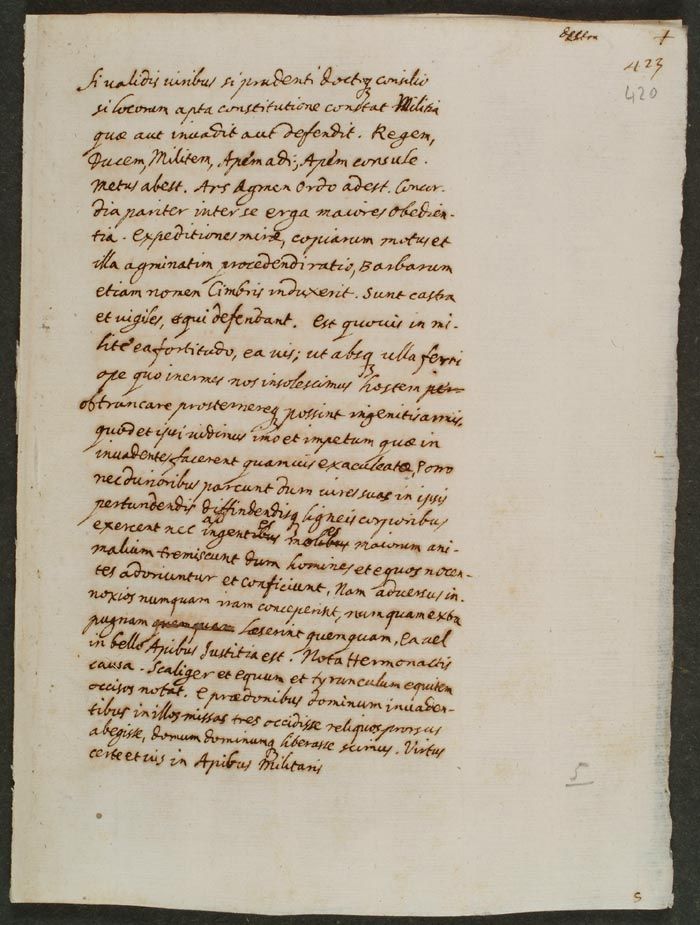 423
420
Si validis viribus si prudenti doctoq consilio
si locorum apta constitutione constat Militia
quæ aut invadit aut defendit. Regem,
Ducem, Militem, Apem adi, Apem consule.
Metus abest. Ars Agmen Ordo adest. Concor-
dia pariter inter se erga maiores Obedien-
tia. Expeditiones miræ, copiarum motus et
illa agminatim procedendi ratio, Barbarum
etiam nomen Cimbris induxerit. Sunt castra
et vigiles, e qui defendant. Est quovis in mi-
lite ea fortitudo, ea vis; ut absq ulla ferri
ope quo inermes nos insolescimus hostem per-
obtruncare prosternereq possint ingenitis armis,
quod et ipsi vidimus imo et impetum quæ in
invadentes facerent quamvis exaculeatæ, Porro
nec durioribus parcunt dum vires suas in ipsis
pertundendis diffindendisq ligneis corporibus
exercent nec ad ingentes moles maiorum ani-
malium tremiscunt dum homines et equos nocen-
tes adoriuntur et conficiunt, Nam adversus in-
noxios numquam iram conceperint, numquam extra
pugnam quemquam Læserint quemquam, Ea vel
in bello Apibus Iustitia est. Nota Hermonactis
causa. Scaliger et equum et tyrunculum equitem
occisos notat. E prædonibus dominum invaden-
tibus in illos missas tres occidisse reliquos prorsus
abegisse, domum dominumq liberasse scimus. Virtus
certe et vis in Apibus Militaris
5
S